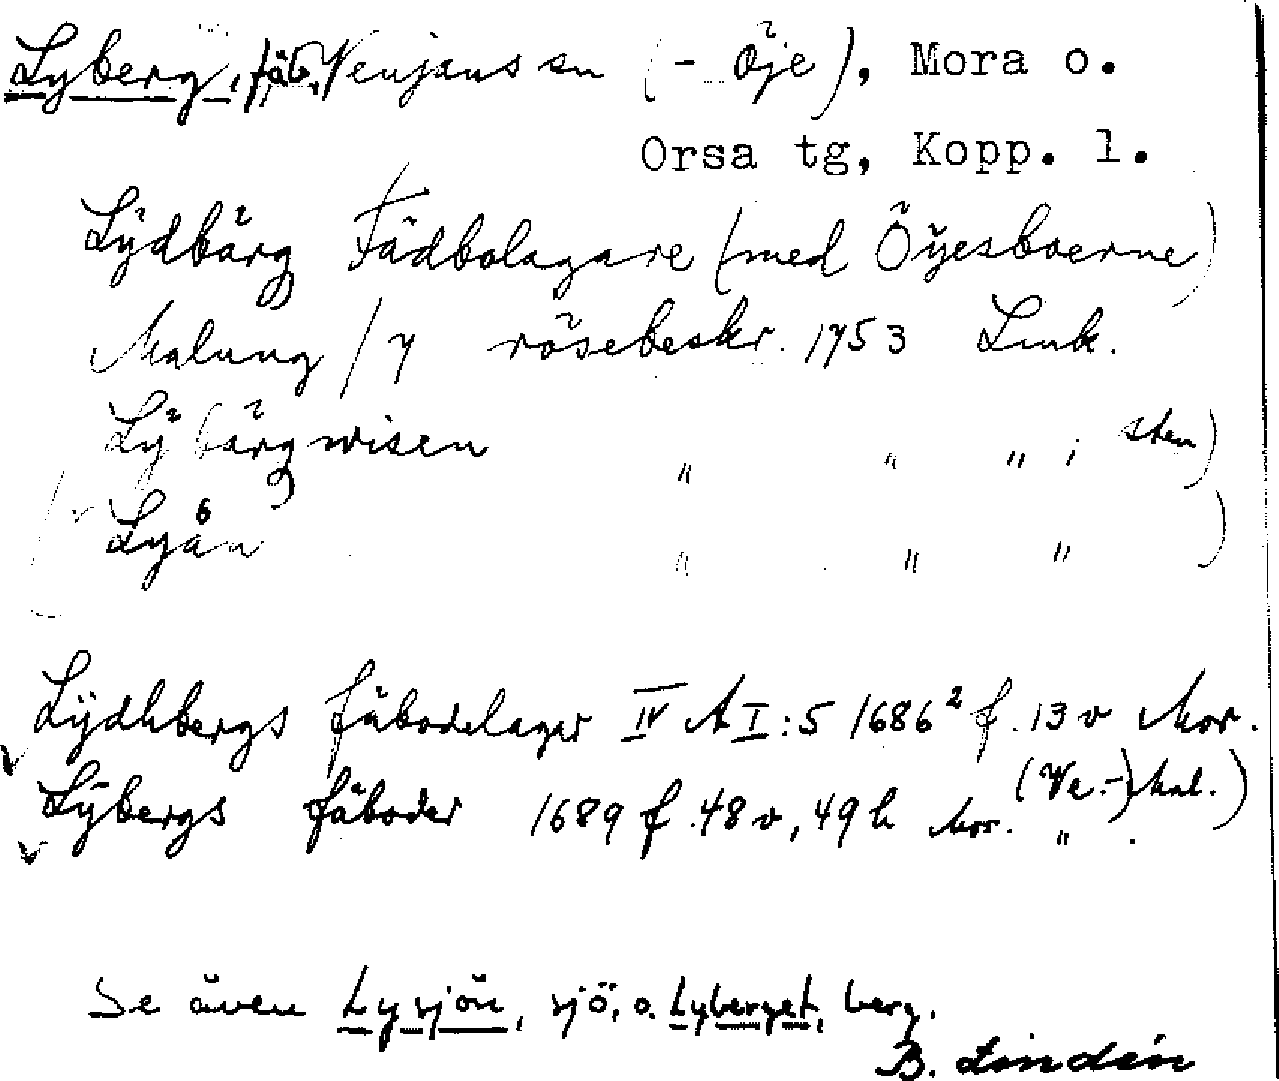 Lyberg, fäb, Venjans sn (- Öje), Mora o.
Orsa tg, Kopp. l.
Lÿdbärg Fädbolagare (med Öÿesboerne)
Malung /7 rösebeskr. 1753 Lmk.
Lÿbärgwisen " " " ; sten)
( Lyån " " " )
Lÿdhbergs fäbodelager IV A I:5 1686² f. 13 v Mor.
(Ve.-) Mal.)
Lÿbergs fäboder 1689 f. 48 v, 49 h Mor. " .
Se även Lysjön, sjö, o. Lyberget, berg.
B. Lindén